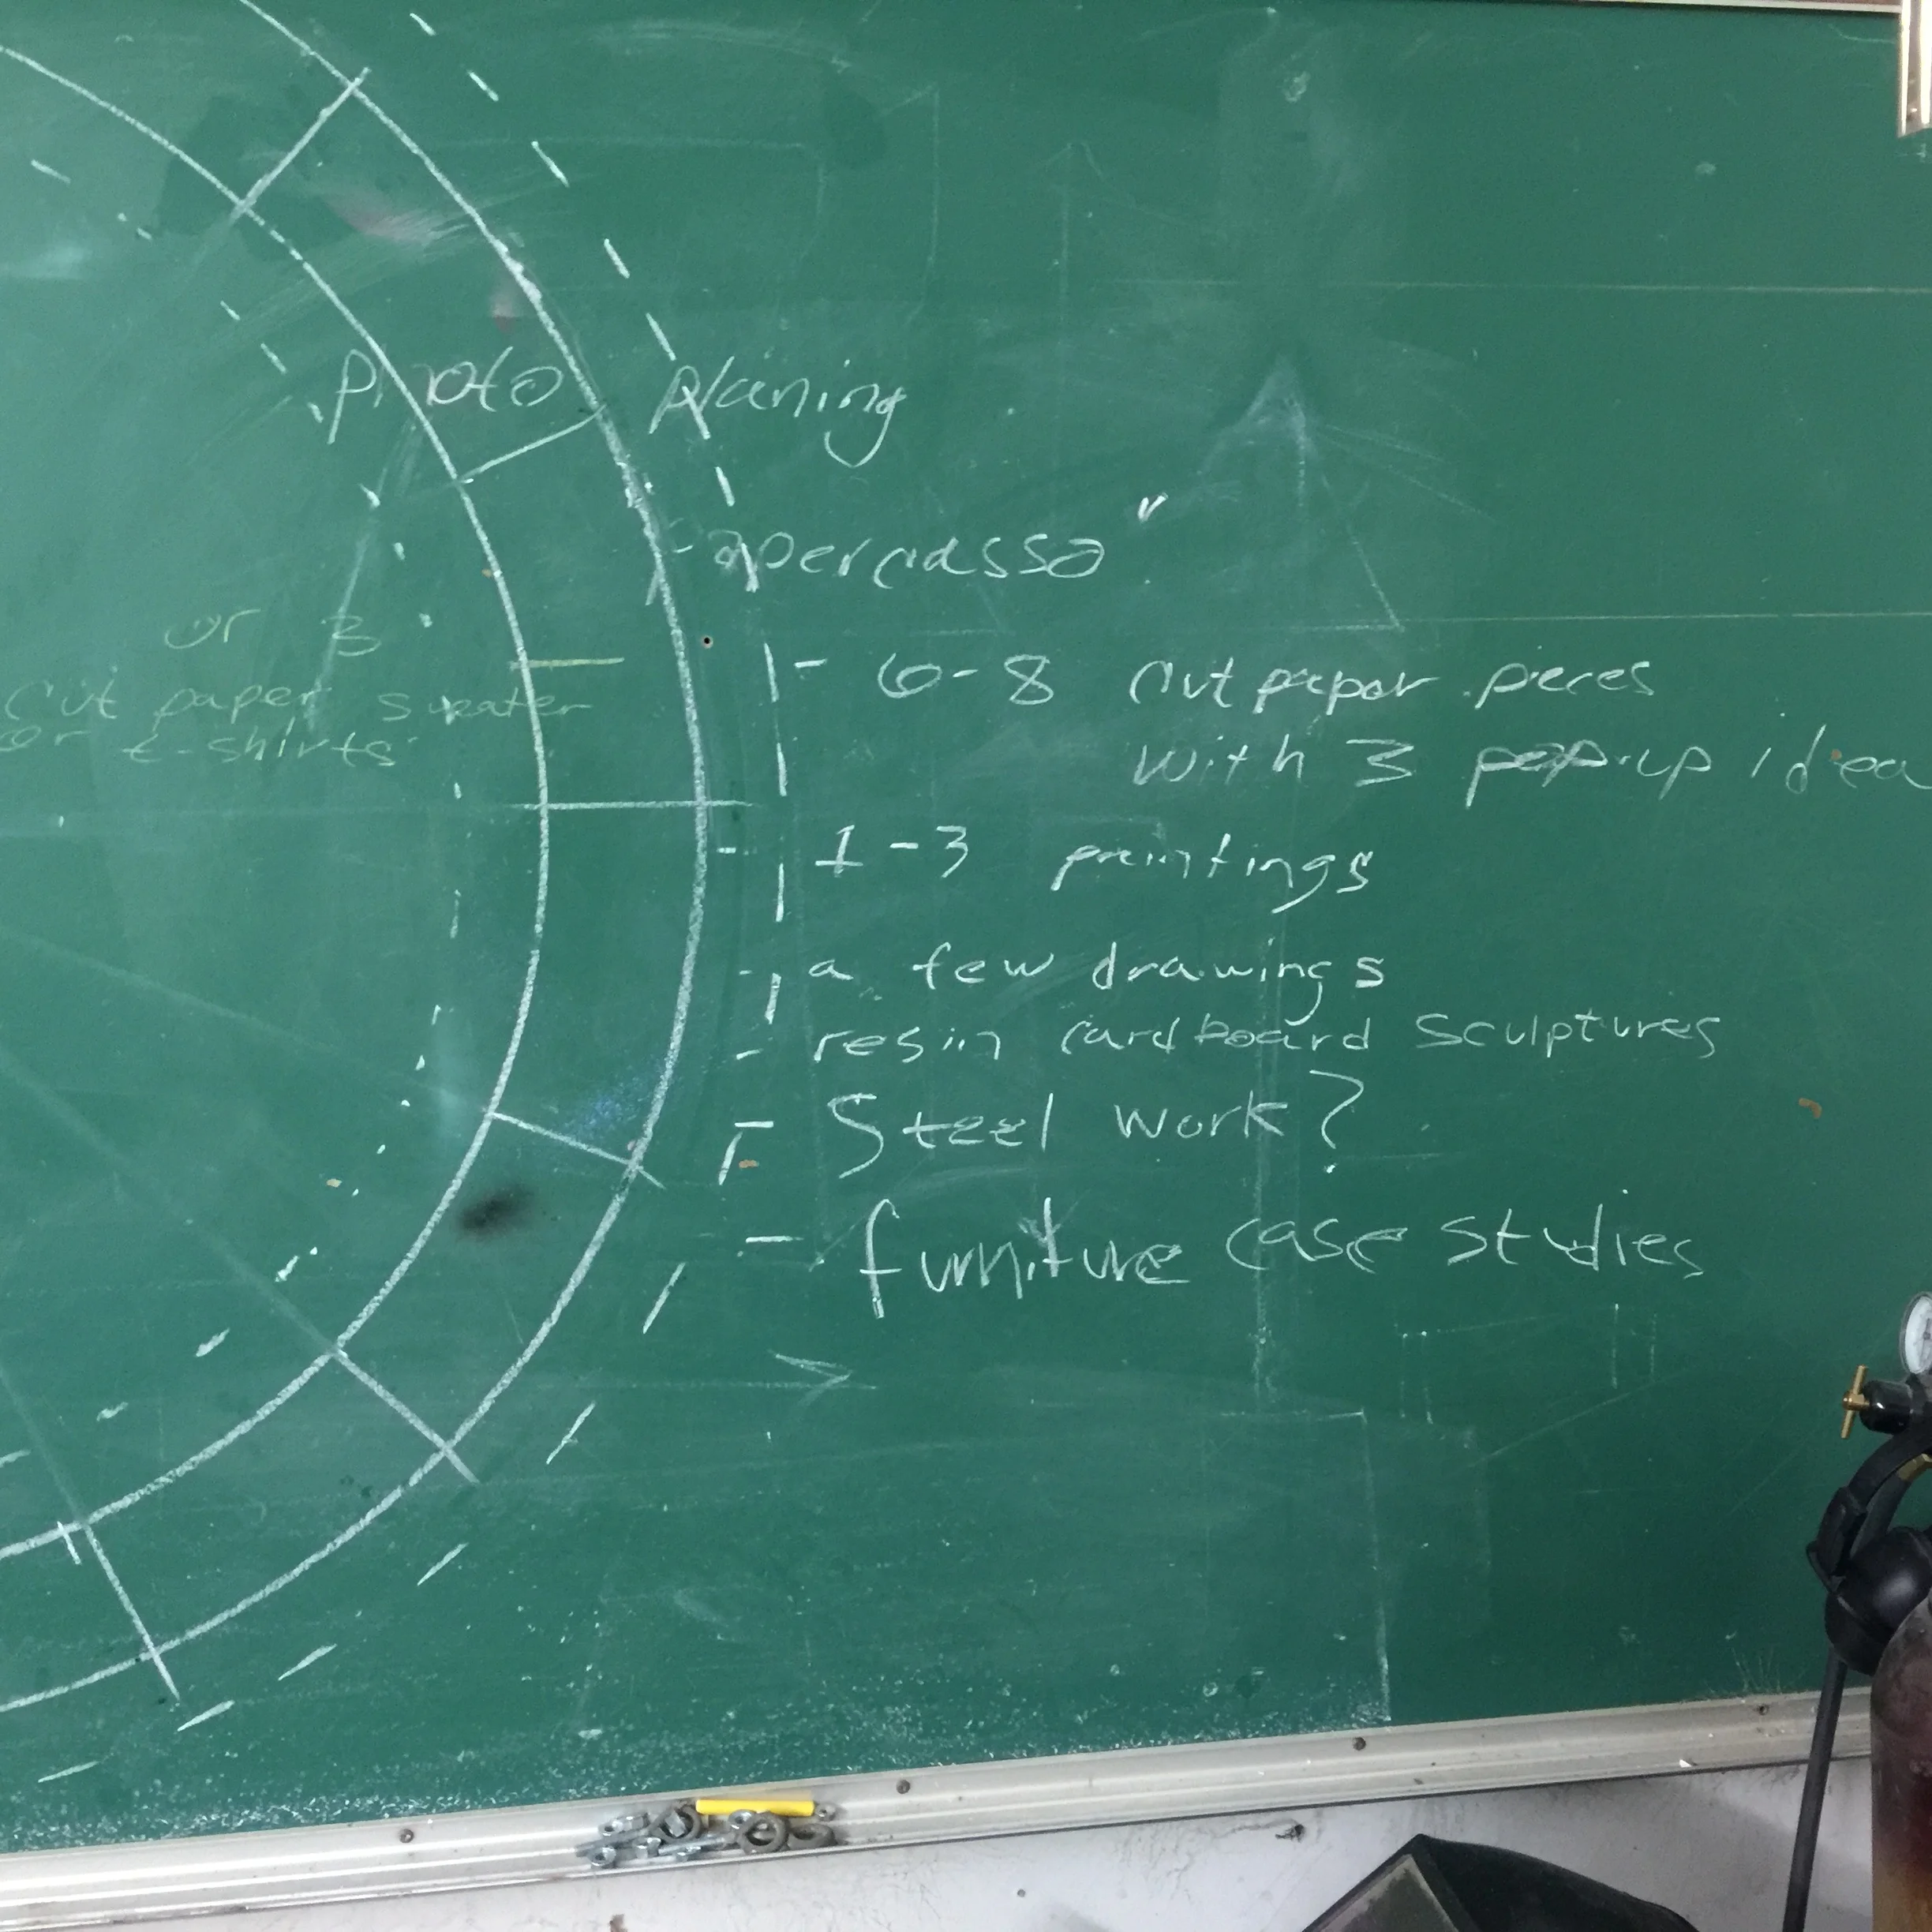 photo planing
papercasso"
or 3
cut paper sweater
or t-shirts
- 6-8 cut paper pieces
with 3 pop-up idea
- 1-3 paintings
- a few drawings
- resin cardboard sculptures
- Steel work?
- furniture case studies